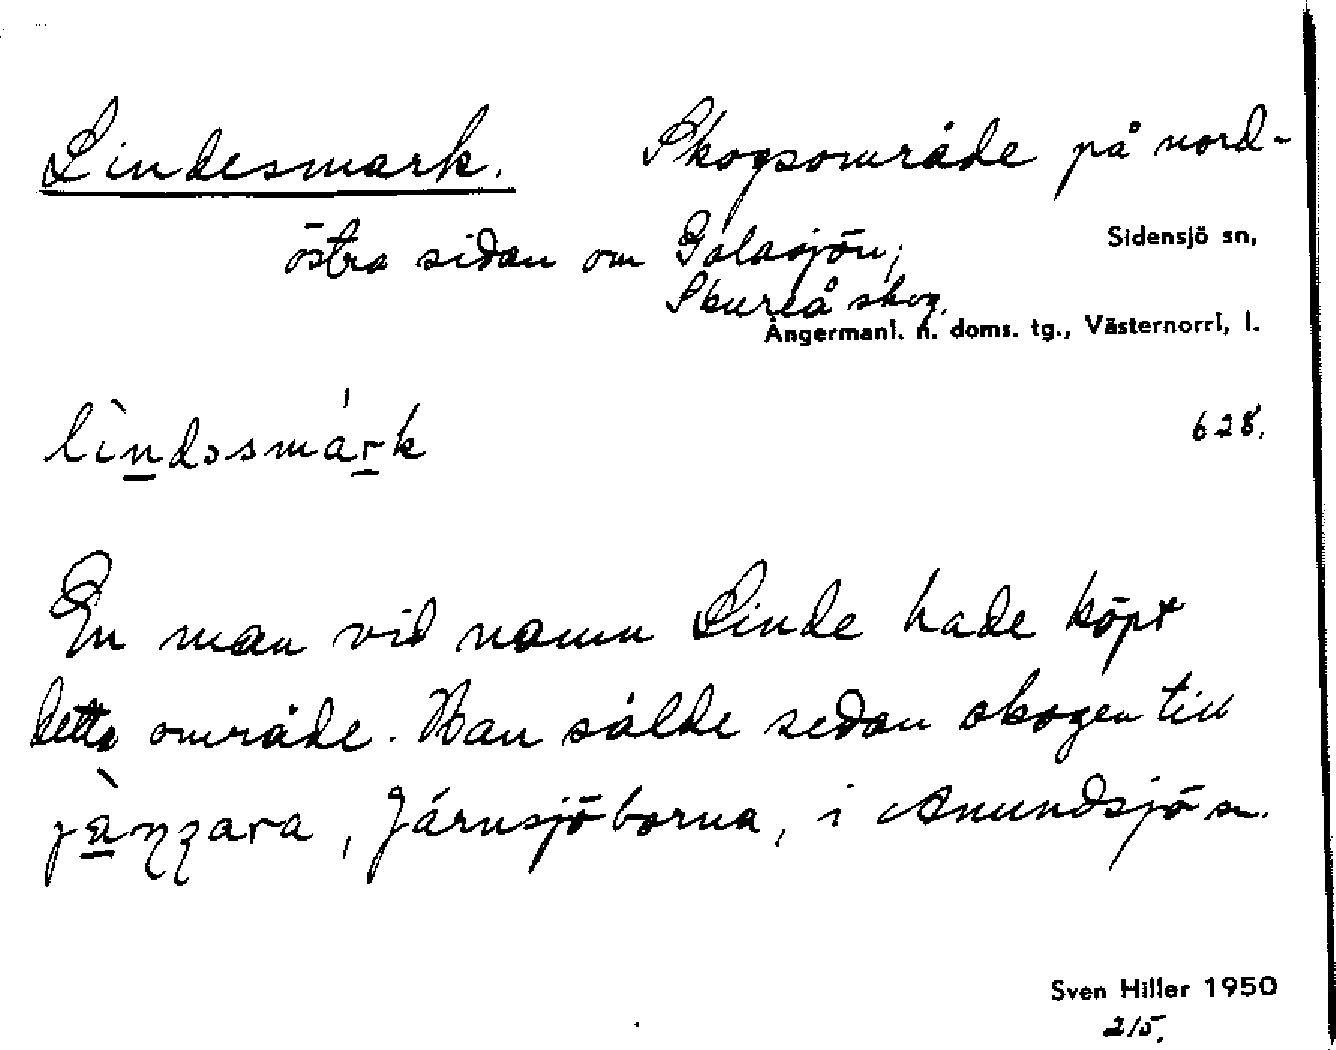 Lindesmark. Skogsområde på nord-
östra sidan om Galasjön;
Sidensjö sn,
Skureå skog.
Ångermanl. n. doms. tg., Västernorrl, l.
628.
En man vid namn Linde hade köpt
detta område. Han sålde sedan skogen till
, Järnsjöborna, i Anundsjö sn.
Sven Hiller 1950
2/5.